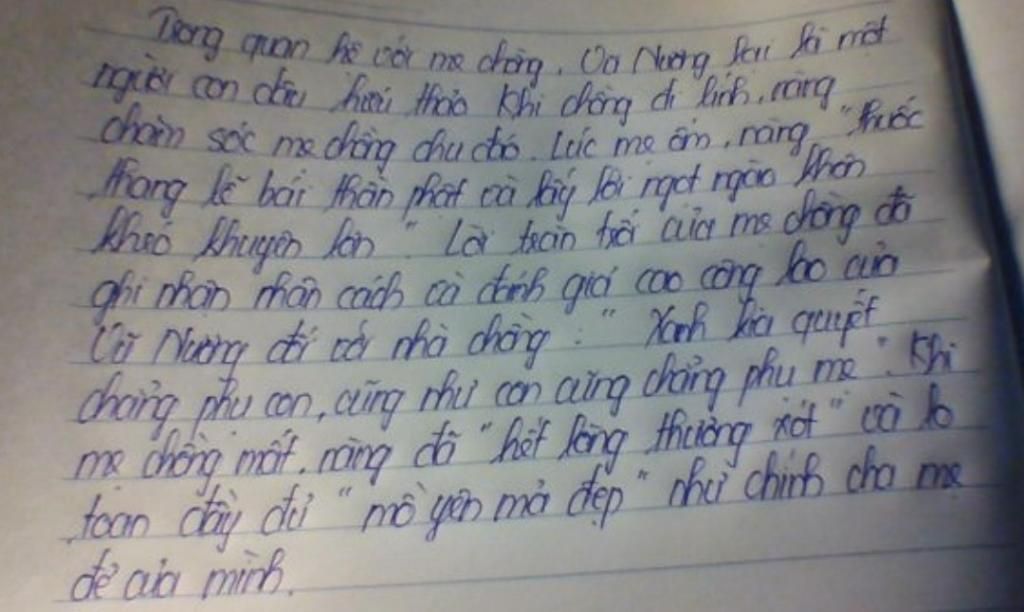 Trong quan hệ với mẹ chồng, Vũ Nương lại là một
người con dâu hiếu thảo Khi chồng đi lính, nàng
chăm sóc mẹ chồng chu đáo. Lúc mẹ ốm, nàng "thuốc
thang lễ bái thần phật và lấy lời ngọt ngào khôn
khéo khuyên lơn". Lời trăn trối của mẹ chồng đã
ghi nhận nhân cách và đánh giá cao công lao của
Vũ Nương đối với nhà chồng: "Xanh kia quyết
chẳng phụ con, cũng như con cũng chẳng phụ mẹ". Khi
mẹ chồng mất, nàng đã "hết lòng thương xót" và lo
toan đầy đủ "mồ yên mả đẹp" như chính cha mẹ
đẻ của mình.